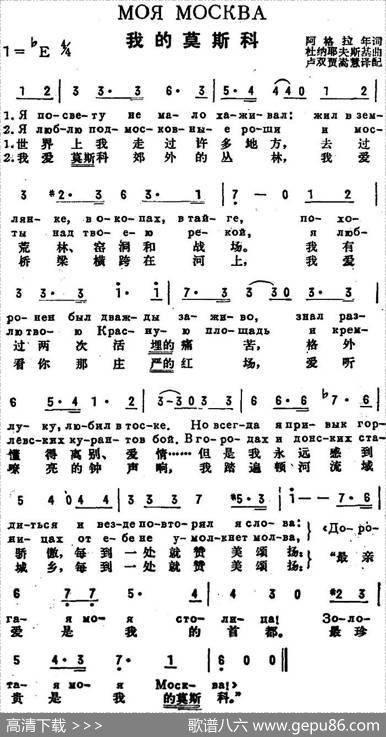 МОЯ МОСКВА
我的莫斯科
1=♭E 4/4
阿格拉年词
杜纳耶夫斯基曲
卢双贾嵩慧译配
1 2 | 3 3· 3 6· 3 | 5·4 4 0 1 2 |
1.Я по-све-ту не ма-ло ха-жи-вал: жил в зем-
2.Я люб-лю под-мос-ков-ны-е ро-щи и мос-
1.世界上我走过许多地方，去过
2.我爱莫斯科郊外的丛林，我爱
3 #2·3 6 3·1 | 7 — 0 1 2 |
лян-ке, в о-ко-пах, в тай-ге, по-хо-
ты над тво-е-ю ре-кой, я люб-
荒林、窑洞和战场。我有
桥梁横跨在河上，我爱
3 3·3 i·i | 7·3 3 0 3· 3 |
ро-нен был дваж-ды за-жи-во, знал раз-
лю тво-ю Крас-ну-ю пло-щадь и крем-
过两次活埋的痛苦，格外
看你那庄严的红场，爱听
6 5·4 1·2 | 3-3 0 3 0 3 | 6 6 6· ♭7·6 |
лу-ку, лю-бил в тос-ке. Но всег-да я при-вык гор-
лёвс-ких ку-ран-тов бой. В го-ро-дах и донс-ких ста-
懂得离别、爱情……但是我永远感到
嘹亮的钟声响，我踏遍顿河流域
5 4 0 4 4 | 3 3 3 7 #5·3 | i — 1 7·6 |
дить-ся и вез-де по-вто-рял я сло-ва: «До-ро-
ни-цах от е-бе не у-молк-нет мол-ва,
骄傲，每到一处就赞美颂扬： “最亲
城乡，每到一处就赞美颂扬：
6 7 7 5· 4 | 4 3 0 #2 3 |
га-я мо-я сто-ли-ца! Зо-ло-
爱是我的首都。最珍
5 4·3 7· 1 | 6 0 0 ‖
та-я мо-я Моск-ва!»
贵是我的莫斯科。”
高清下载 >>>
歌谱八六 www.gepu86.com